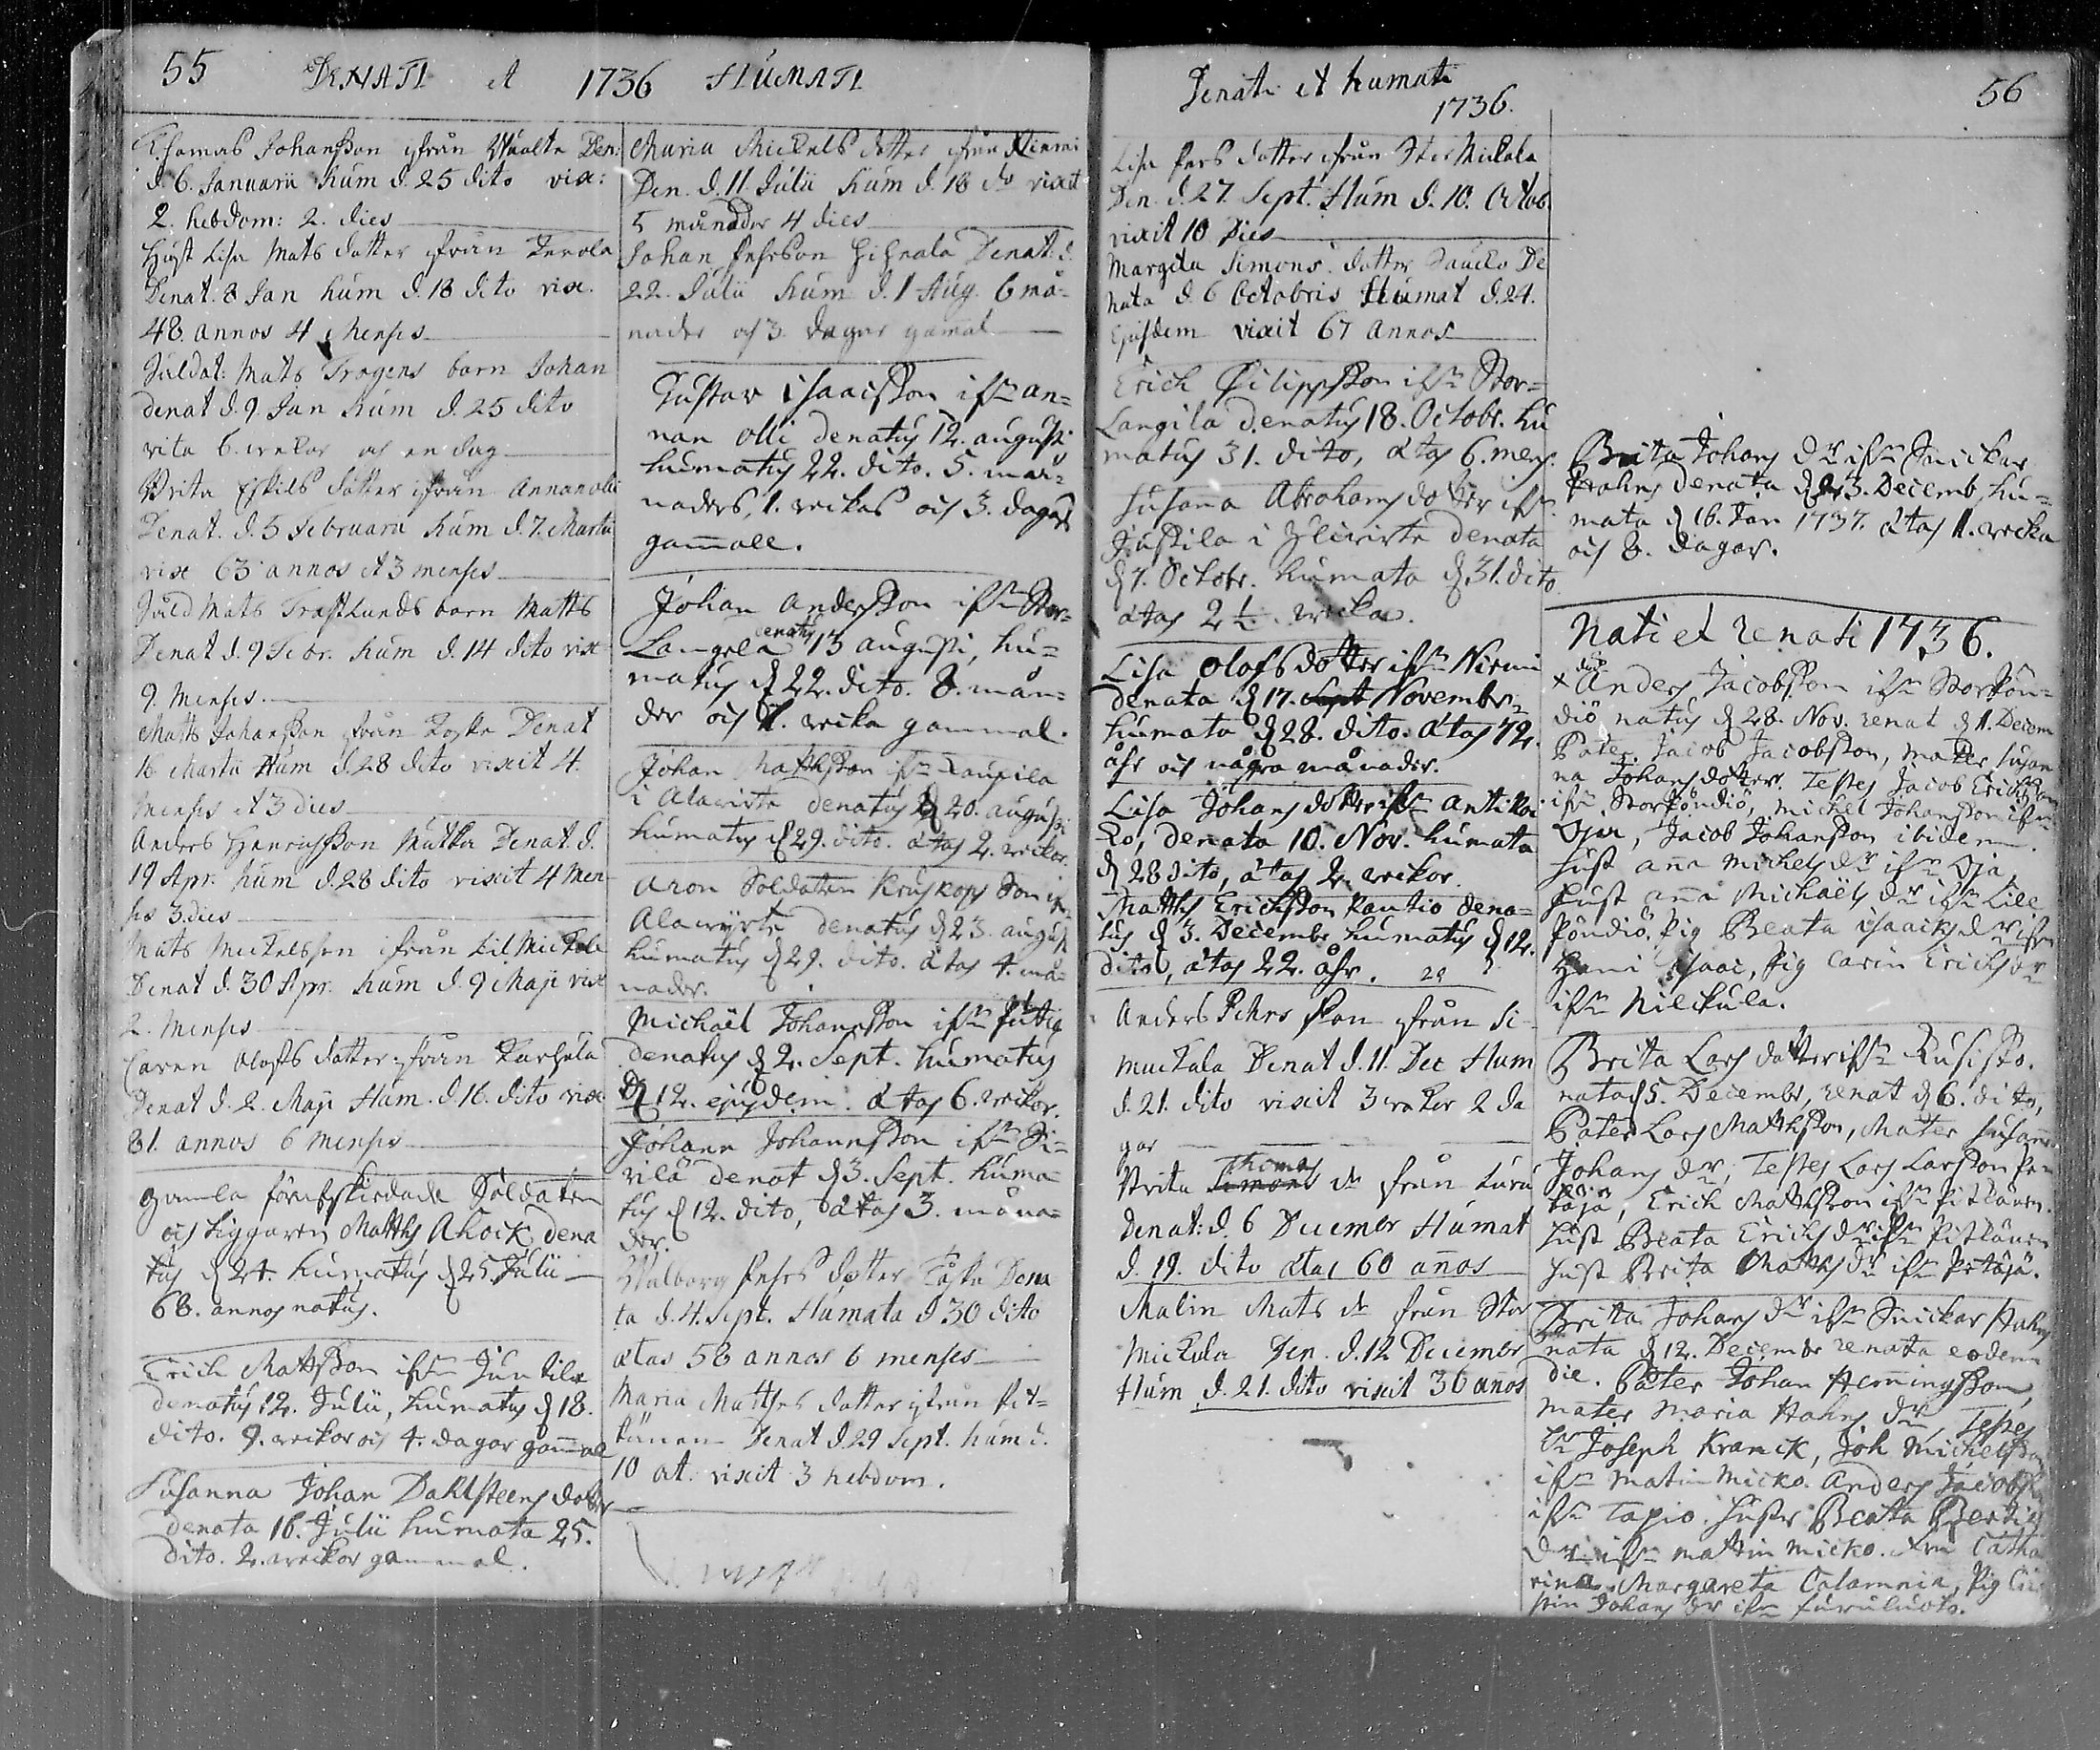 55 DENATI et 1736 HUMATI
Thomas Johansson ifrån Waalte Den:
d. 6. Januarii hum d. 25 dito vix:
2. hebdom: 2. dies
Hust Lisa Mats dotter ifrån Penola
Denat. 8 Jan hum d. 18 dito vix.
48. annos 4 Menses
Suldat: Mats Trogens barn Johan
denat d. 9. Jan hum d. 25 dito
vita 6. wekor och en dag
Brita Eskils dotter ifrån Annanolli
Denat. d. 5 Februarii hum d. 7. Martii
vix 63 annos et 3 menses
Suld Mats Trastlunds barn Matts
Denat d. 9 Febr. hum d. 14 dito vix
9. Menses
Matts Johansson ifrån Koske Denat
16 Martii Hum d. 28 dito vixit 4.
Menses et 3 dies
Anders Henrichsson Mutka Denat. d.
19 Apr. hum d. 28 dito vixit 4 Men
ses 3. dies
Mats Mickelsson ifrån Lil Mickola
Denat d. 30 Apr. hum d. 9 Maji vix
2. Menses
Caren Olofs dotter ifrån Karhula
Denat d. 2. Maji Hum. d. 16. dito vix
81. annos 6 Menses
gamla förafskiedade Soldaten
och tiggaren Matths Ahock, dena
tus d 24. humatus d 25 Julii
68. annos natus.
Erich Mattsson ifrn Juntila
denatus 12. Julii, humatus d 18.
dito. 9. weckor och 4. dagar gammal
Susanna Johan Dahlsteens dotter
denata 16. Julii humata 25.
dito. 2. weckor gammal.
Maria Mickels dotter ifrån Niemi
Den. d. 11. Julii hum d. 18 do vixit
5 månader 4 dies
Johan Pehrson Hihnala Denat: d.
22. Julii hum d. 1 Aug. 6 må-
nader och 3. dagar gamal
Gustav Isaacsson ifrn an=
nan olli denatus 12. augusti
humatus 22. dito. 5. må=
naders, 1. weckas och 3. dagars
gammall.
Johan Andersson ifrn Stor=
Langela denatus 13 augusti, hu=
matus d 22. dito. 8. måna=
der och 1. wecka gammal.
Johan Matthsson ifrn Laupila
i Alavirte denatus d 20. augusti
humatus d 29. dito. ætas 2. weckor.
Aron Soldaten Kruskops Son ifrn
Alawyrte denatus d 23. august
humatus d 29. dito. ætas 4. må=
nader.
Michaël Johansson ifrn Juttis
denatus d 2. Sept. humatus
d 12. ejusdem. ætas 6. weckor.
Johann Johannsson ifrn Si=
vilä denat d 3. Sept. huma=
tus d 12. dito, ætas 3. måna=
der.
Walborg Pehrs dotter Kåske Dena
ta d. 4. Sept. Humata d 30 dito
ætas 58 annos 6 menses
Maria Matthes dotter ifrån Pit=
känen Denat d. 29 Sept. hum d.
10 oct. vixit 3 hebdom.
Denati et humati 56
1736.
Lisa Pers dotter ifrån Stor Mickola
Den. d. 27. Sept. Hum d. 10. Octob.
vixit 10 Dies
Margeta Simons dotter Saucko De
nata d. 6 Octobris Humat d. 24.
Ejusdem vixit 67 Annos
Erich Philippsson ifrn Stor=
Langila denatus 18. Octobr. hu
matus 31. dito, ætas 6. mens.
Susanna Abrahams dotter ifrn
Juskila i Ylivirte denata
d 7. Octobr. humata d 31. dito
ætas 2 1/2. wecka.
Lisa Olofs dotter ifrn Niemi
denata d 17. Sept November
humata d 28. dito. ætas 72.
åhr och några månader.
Lisa Johans dotter ifrn Antikai
ko, denata 10. Nov. humata
d 28 dito, ætas 2. weckor.
Matths Erichsson Kautio dena=
tus d 3. Decembr humatus d 12.
dito, ætas 22. åhr.
Anders Pehrs son ifrån Li
Muckala Denat d. 11. Dec Hum
d. 21. dito vixit 3 wekor 2 da
gar
Brita Simons Thomas dr ifrån Luru
Denat: d. 6 Decemer Humat
d. 19. dito ætas 60 años
Malin Mats dr ifrån Stor
Mickola Den. d. 12 Decemer
Hum d. 21. dito vixit 36 años
Brita Johans dr ifrn Snickar
Hahns denata d 23. Decemb, hu=
mata d 16. Jan 1737. ætas 1. wecka
och 8. dagar.
Nati et renati 1736.
x Anders Jacobsson ifrn Storpön=
diö natus d 28. Nov. renat d 1. Decem
Pater Jacob Jacobsson, mater Susan
na Johans dotter. Testes Jacob Erichsson
ifrn Storpöndiö, Michel Johansson ifrn
Oja, Jacob Johansson ibidem.
Hust anna Michels dr ifrn Oja,
Hust anna Michaëls dr ifrn Lill
Pöndiö. Pig Beata Isaacks dr ifrn
Heni Isaac, Pig Carin Erichs dr
ifrn Nickula.
Brita Lars dotter ifrn Rusisto.
nata d 5. Decembr, renat d 6. dito,
Pater Lars Matthsson, Mater Susanna
Johans dr, Testes Lars Larsson Pe
täjä, Erich Matthsson ifrn Pitkänen.
Hust Beata Erichs dr ifrn Pitkänen
Hust Brita Matths dr ifrn Petäjä.
Brita Johans dr ifrn Snickar Hahns
nata d 12. Decembr renata eodem
die. Pater Johan Hemingsson,
mater Maria Hahns dr, Testes
Hr Joseph Kranck, Joh Michelsson
ifrn Matin Micko. Anders Jacobsson
ifrn Tapio. Hustr Beata Bertils
dr ifrn Mattin Micko. Catha
rina Margareta Calamnia, Pig
stin Johans dr ifrn Furuluoto.